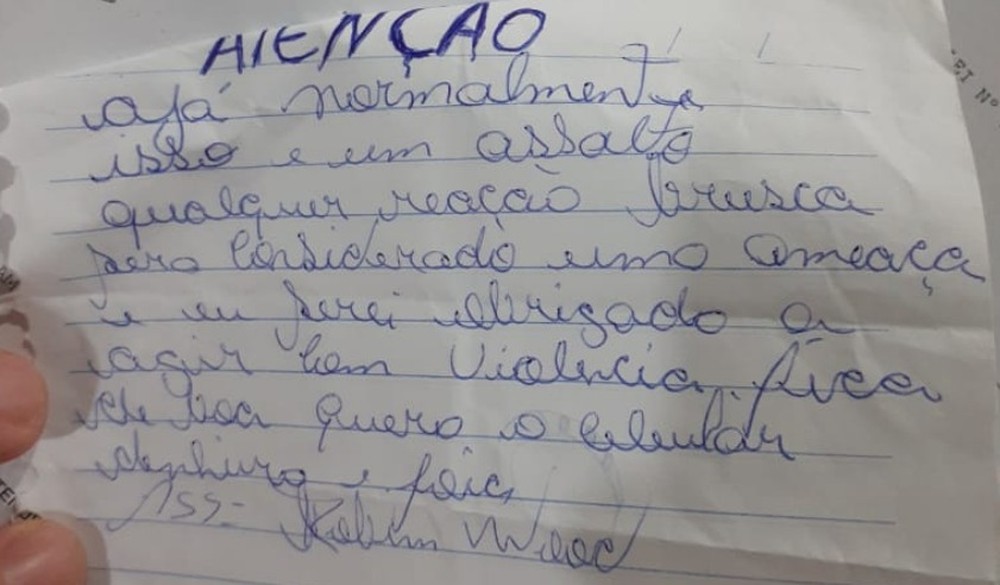 ATENÇÃO
ajá normalmente
isso e um assalto
qualquer reação brusca
sera considerado uma ameaça
e eu serei obrigado a
agir com violencia, fica
de boa quero o celular
dinhiro e joia,
Ass- Robin Wood
EI Nº